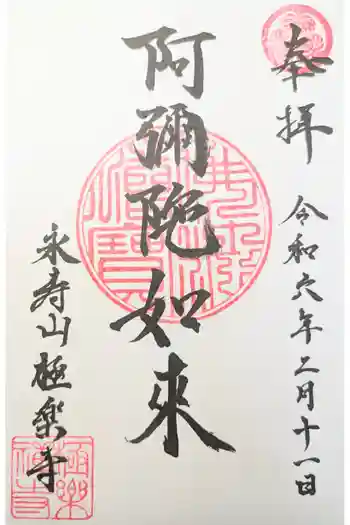 奉拝
令和六年二月十一日
阿彌陀如來
永寿山極楽寺